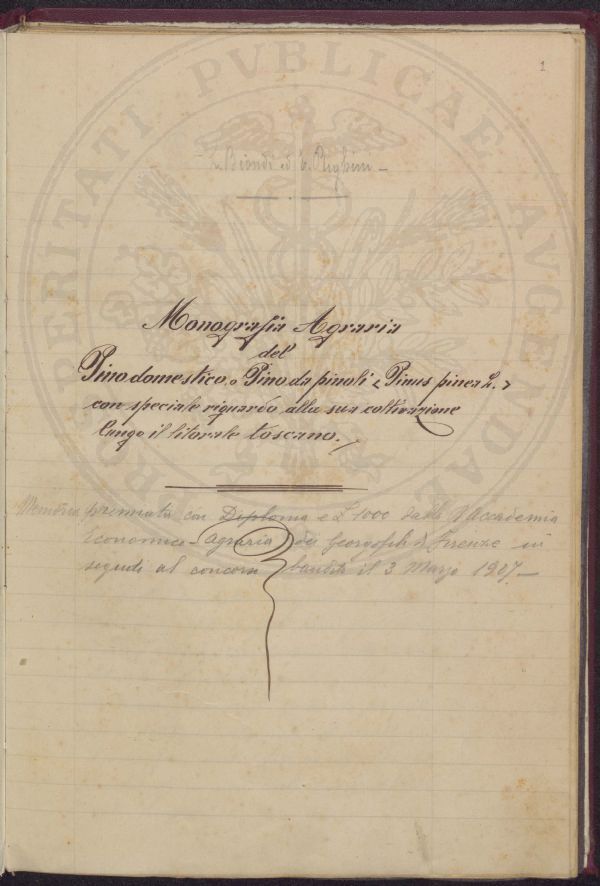 1
Biondi ed E. Righini –
Monografia Agraria
del
Pino domestico o Pino da pinoli < Pinus pinea L. >
con speciale riguardo alla sua coltivazione
lungo il litorale toscano.
Memoria premiata con Diploma e £ 1000 dalla R Accademia
Economico-Agraria dei Georgofili di Firenze in
seguito al concorso bandito il 3 Marzo 1907 –
PROSPERITATI PVBLICAE AVGENDAE